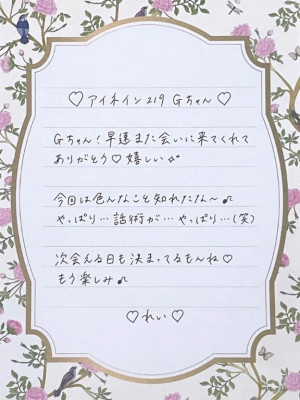 ♡アイネイン219 Gちゃん♡
Gちゃん！早速また会いに来てくれて
ありがとう♡嬉しい✨
今回は色んなこと知れたな〜♪
やっぱり…話術が…やっぱり…(笑)
次会える日も決まってるもんね♡
もう楽しみ♪
♡れい♡